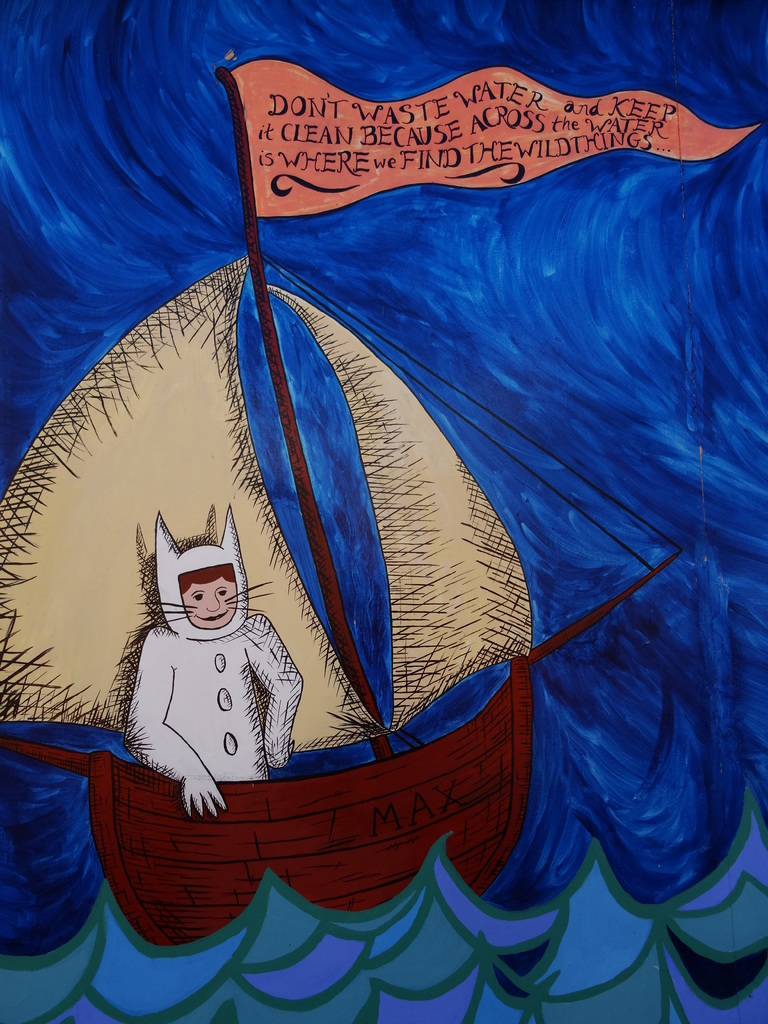 DON'T WASTE WATER and KEEP
it CLEAN BECAUSE ACROSS the WATER
is WHERE we FIND THE WILD THINGS...
MAX